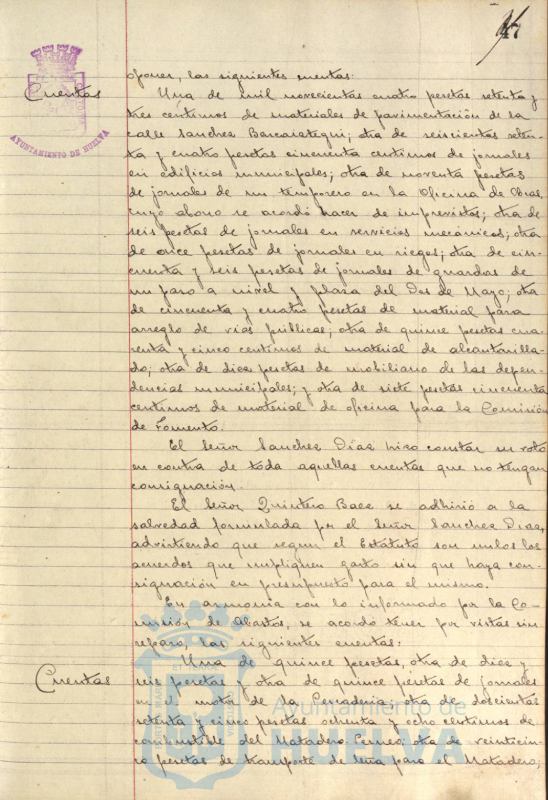 AYUNTAMIENTO DE HUELVA
Cuentas
oponer, las siguientes cuentas:
Una de mil novecientas cuatro pesetas setenta y
tres centimos de materiales de pavimentación de la
calle Sanchez Barcaiztegui; otra de seiscientas seten-
ta y cuatro pesetas cincuenta centimos de jornales
en edificios municipales; otra de noventa pesetas
de jornales de un temporero en la Oficina de Obras,
cuyo abono se acordó hacer de imprevistos; otra de
seis pesetas de jornales en servicios mecánicos; otra
de once pesetas de jornales en riegos; otra de cin-
cuenta y seis pesetas de jornales de guardas de
un paso a nivel y plaza del Dos de Mayo; otra
de cincuenta y cuatro pesetas de material para
arreglo de vias públicas; otra de quince pesetas cua-
renta y cinco centimos de material de alcantarilla-
do; otra de diez pesetas de mobiliario de las depen-
dencias municipales; y otra de siete pesetas cincuenta
centimos de material de oficina para la Comisión
de Fomento.
El Señor Sanchez Díaz hizo constar su voto
en contra de toda aquellas cuentas que no tengan
consignación.
El Señor Quintero Baez se adhirió a la
salvedad formulada por el Señor Sanchez Diaz,
advirtiendo que segun el Estatuto son nulos los
acuerdos que impliquen gasto sin que haya con-
signación en presupuesto para el mismo.
En armonia con lo informado por la Co-
misión de Abastos, se acordó tener por vistas sin
reparo, las siguientes cuentas:
Cuentas
Una de quince pesetas, otra de diez y
seis pesetas y otra de quince pesetas de jornales
en el motor de la Pescaderia; otra de doscientas
setenta y cinco pesetas ochenta y ocho centimos de
combustible del Matadero; otra de veinticin-
co pesetas de transporte de leña para el Matadero;
Ayuntamiento de
HUELVA